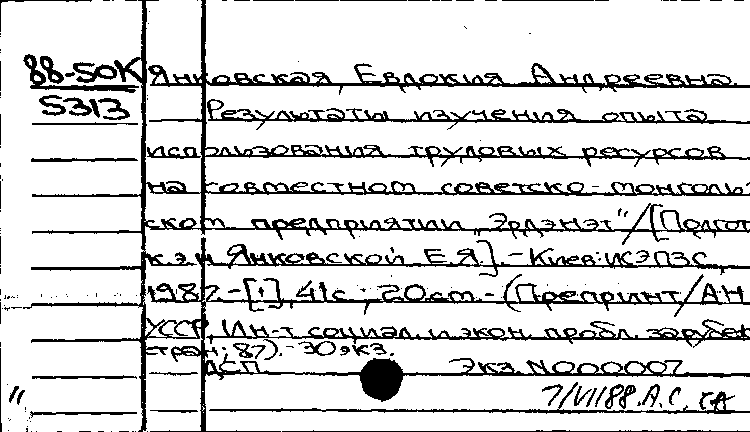 88-50К Янковская, Евдокия Андреевна
5313 Результаты изучения опыта
использования трудовых ресурсов
на совместном советско-монголь-
ском предприятии „Эрдэнэт"/[Подгот.
к.э.н Янковской Е.Я.].-Киев:ИСЭПЗС,
1987.-[1], 41с.; 20см.-(Препринт/АН
УССР, Ин-т социал. и экон. пробл. зарубеж.
стран; 87).-30экз.
ДСП. Экз.N000007
7/VI88.А.С.